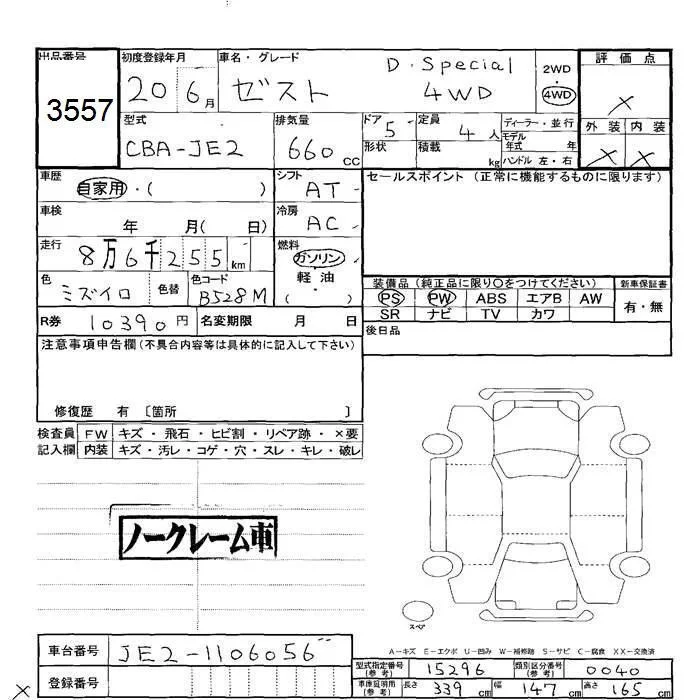 出品番号 初度登録年月 車名・グレード 評価点
3557 20 6月 ゼスト D・Special 4WD 2WD 4WD ×
型式 排気量 ドア 定員 ディーラー・並行 外装 内装
CBA-JE2 660cc 5 4人 モデル年式 年 × ×
形状 積載 kg ハンドル 左・右
車歴 シフト セールスポイント (正常に機能するものに限ります)
自家用・( ) AT
車検 冷房
年 月( 日) AC
走行 燃料
8万6千255km ガソリン・軽油・( )
色 色替 色コード 装備品 (純正品に限り○をつけてください) 新車保証書
ミズイロ B528M PS PW ABS エアB AW 有・無
SR ナビ TV カワ
R券 10390円 名変期限 月 日 後日品
注意事項申告欄 (不具合内容等は具体的に記入して下さい)
修復歴 有 〔箇所 〕
検査員 FW キズ・飛石・ヒビ割・リペア跡・×要
記入欄 内装 キズ・汚レ・コゲ・穴・スレ・キレ・破レ
ノークレーム車
スペア
A-キズ E-エクボ U-凹み W-補修跡 S-サビ C-腐食 XX-交換済
車台番号 JE2-1106056
型式指定番号 (参考) 15296 類別区分番号 (参考) 0040
登録番号
車庫証明用 (参考) 長さ 339cm 幅 147cm 高さ 165cm
×